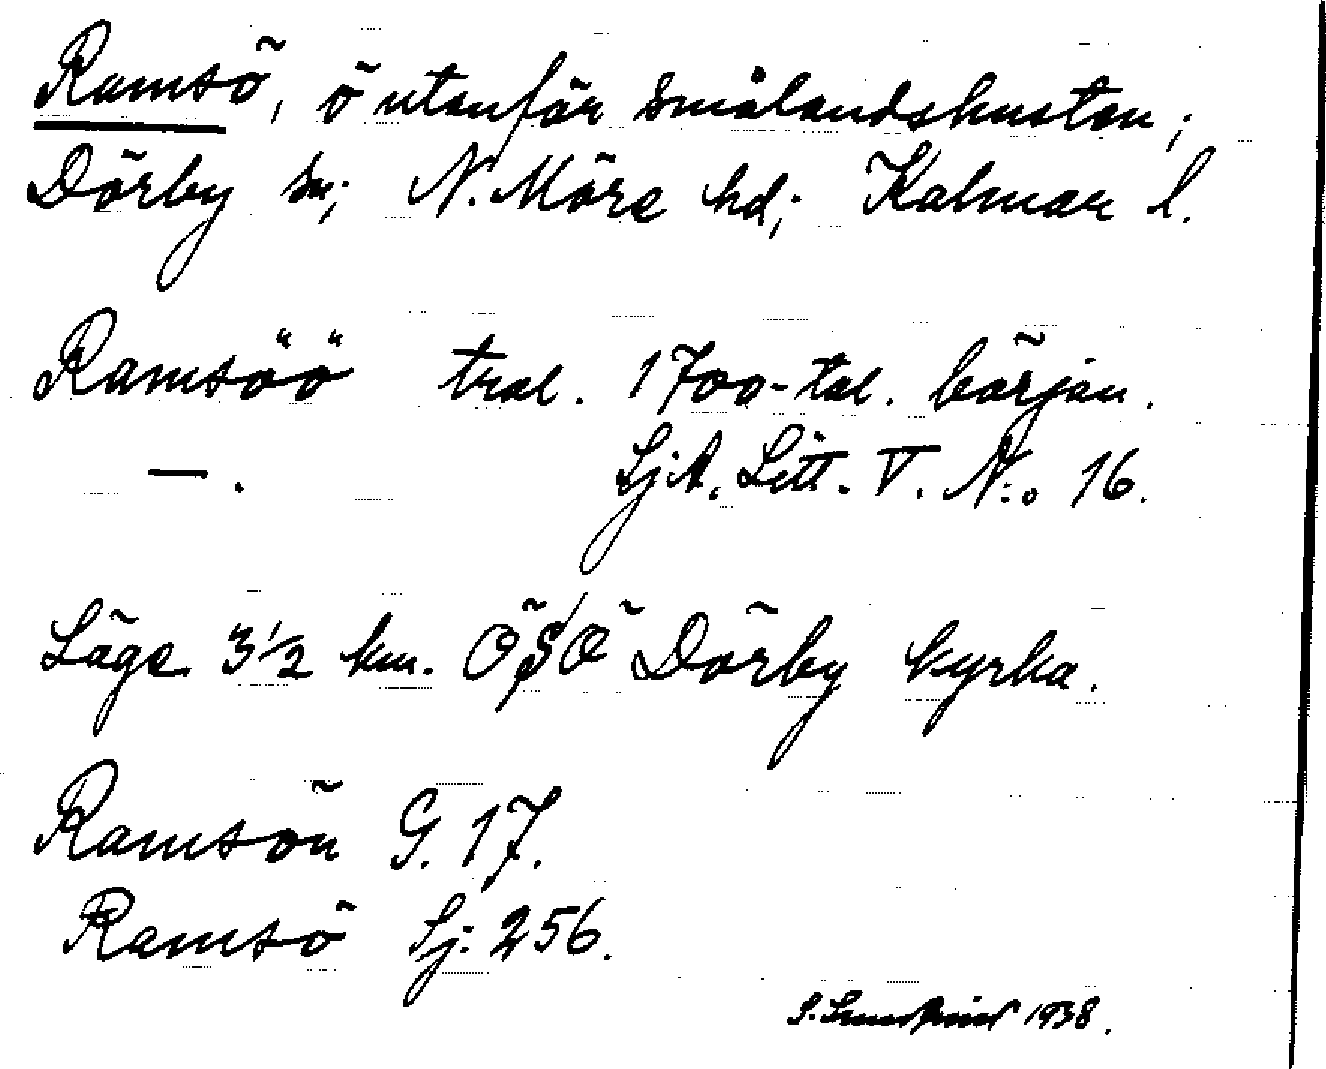 Ramsö, ö utanför Smålandskusten;
Dörby sn; N. Möre hd; Kalmar l.
Ramsöö tral. 1700-tal. början.
—. SjA. Litt. V. N:o 16.
Läge 3 1/2 km. ÖSÖ Dörby kyrka.
Ramsön G. 17.
Ramsö Sj: 256.
S. 1938.